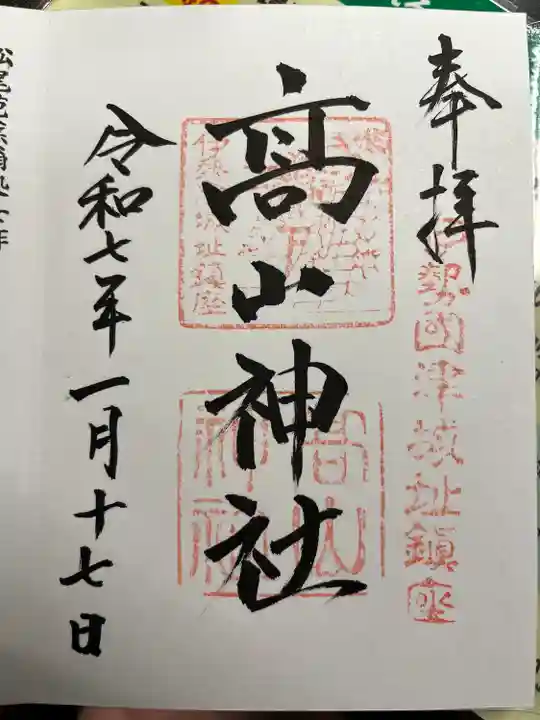 奉拝
伊勢国津城址鎮座
高山神社
高山
神社
令和七年一月十七日